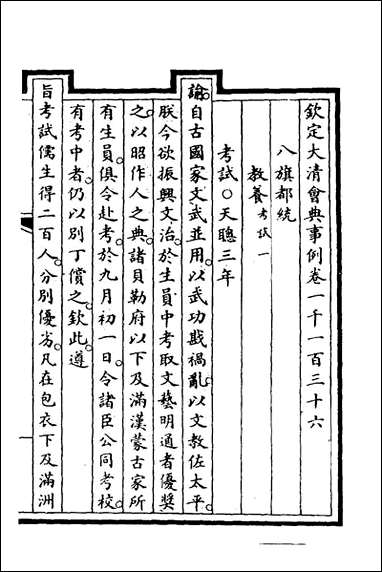 欽定大清會典事例卷一千一百三十六
八旗都統
教養考試一
考試○天聰三年
諭。自古國家文武並用。以武功戡禍亂。以文教佐太平。
朕今欲振興文治。於生員中考取文藝明通者優奬
之。以昭作人之典。諸貝勒府以下及滿漢蒙古家所
有生員。俱令赴考。於九月初一日。令諸臣公同考校。
有考中者。仍以別丁償之。欽此。遵
旨考試儒生得二百人。分別優劣。凡在包衣下及滿洲